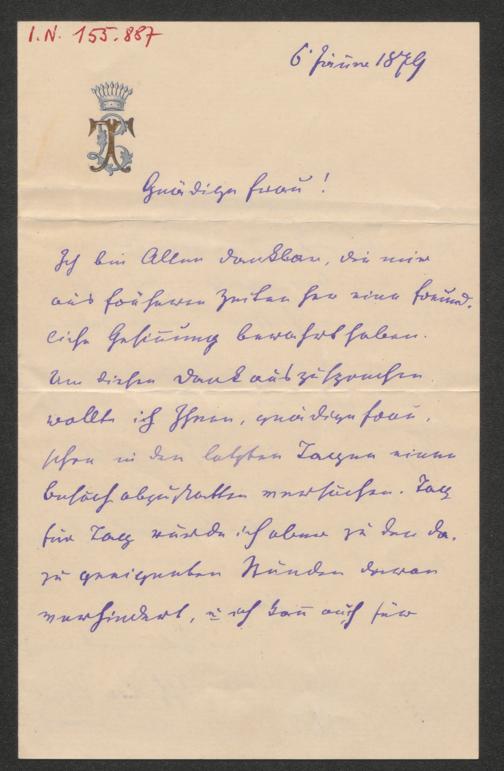 I.N. 155.887
6 Jänner 1879
Gnädige Frau!
Ich bin Allen dankbar, die mir
aus früheren Zeiten her eine freund-
liche Gesinnung bewahrt haben.
Um diesen Dank auszusprechen
wollte ich Ihnen, gnädige Frau,
schon in den letzten Tagen einen
Besuch abzustatten versuchen. Tag
für Tag wurde ich aber zu den da-
zu geeigneten Stunden daran
verhindert, u ich kann auch für